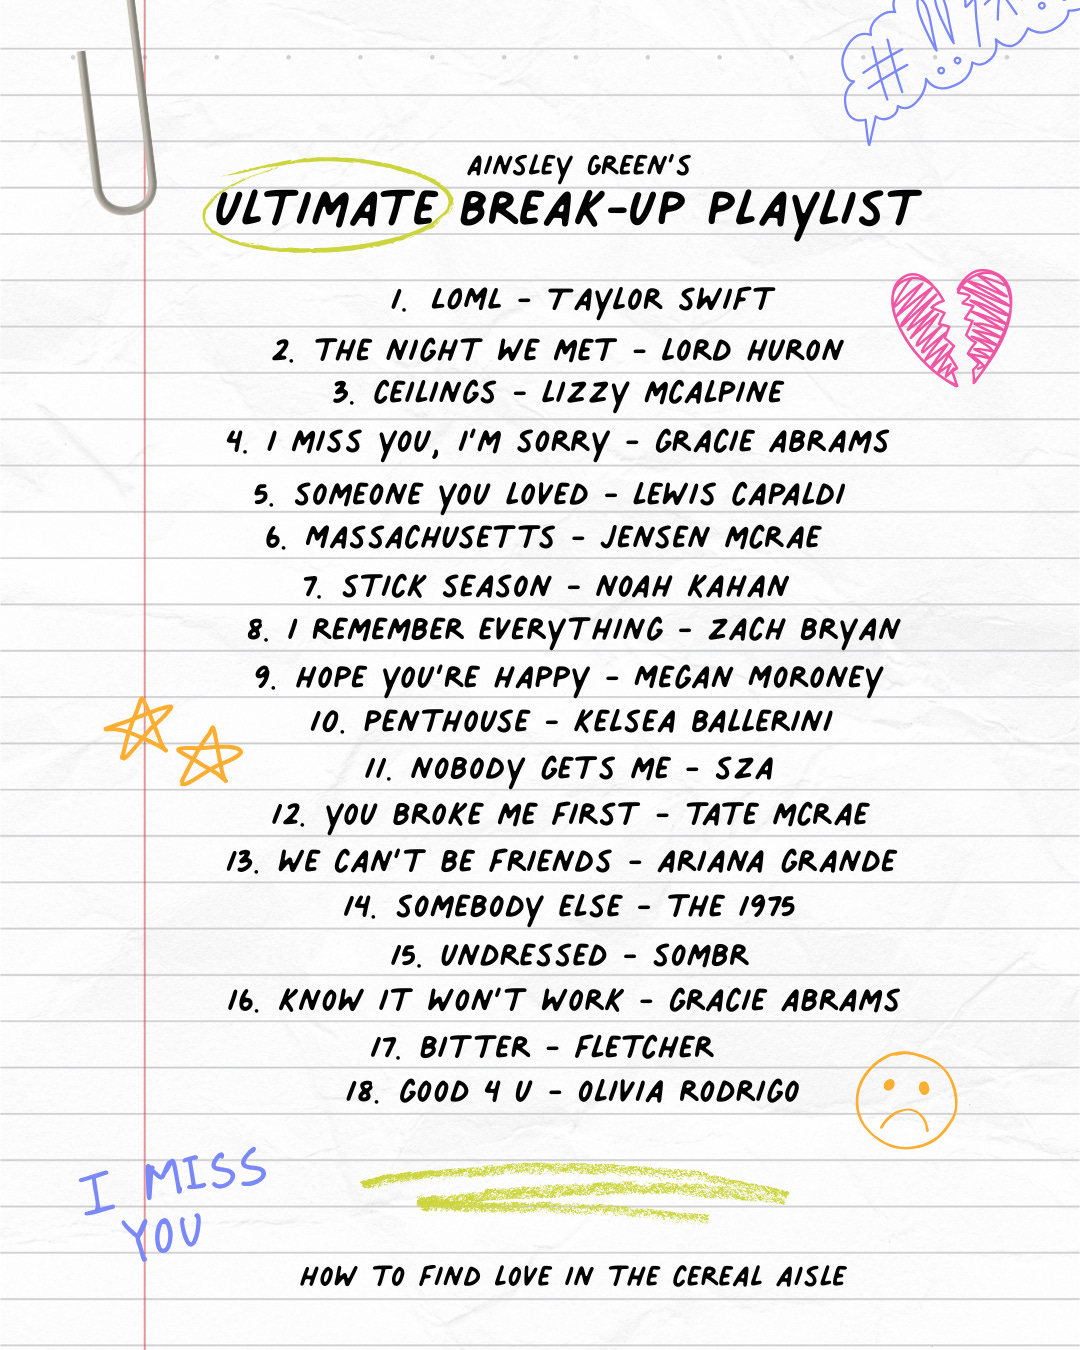 #!!
AINSLEY GREEN'S
ULTIMATE BREAK-UP PLAYLIST
1. LOML - TAYLOR SWIFT
2. THE NIGHT WE MET - LORD HURON
3. CEILINGS - LIZZY MCALPINE
4. I MISS YOU, I'M SORRY - GRACIE ABRAMS
5. SOMEONE YOU LOVED - LEWIS CAPALDI
6. MASSACHUSETTS - JENSEN MCRAE
7. STICK SEASON - NOAH KAHAN
8. I REMEMBER EVERYTHING - ZACH BRYAN
9. HOPE YOU'RE HAPPY - MEGAN MORONEY
10. PENTHOUSE - KELSEA BALLERINI
11. NOBODY GETS ME - SZA
12. YOU BROKE ME FIRST - TATE MCRAE
13. WE CAN'T BE FRIENDS - ARIANA GRANDE
14. SOMEBODY ELSE - THE 1975
15. UNDRESSED - SOMBR
16. KNOW IT WON'T WORK - GRACIE ABRAMS
17. BITTER - FLETCHER
18. GOOD 4 U - OLIVIA RODRIGO
I MISS
YOU
HOW TO FIND LOVE IN THE CEREAL AISLE